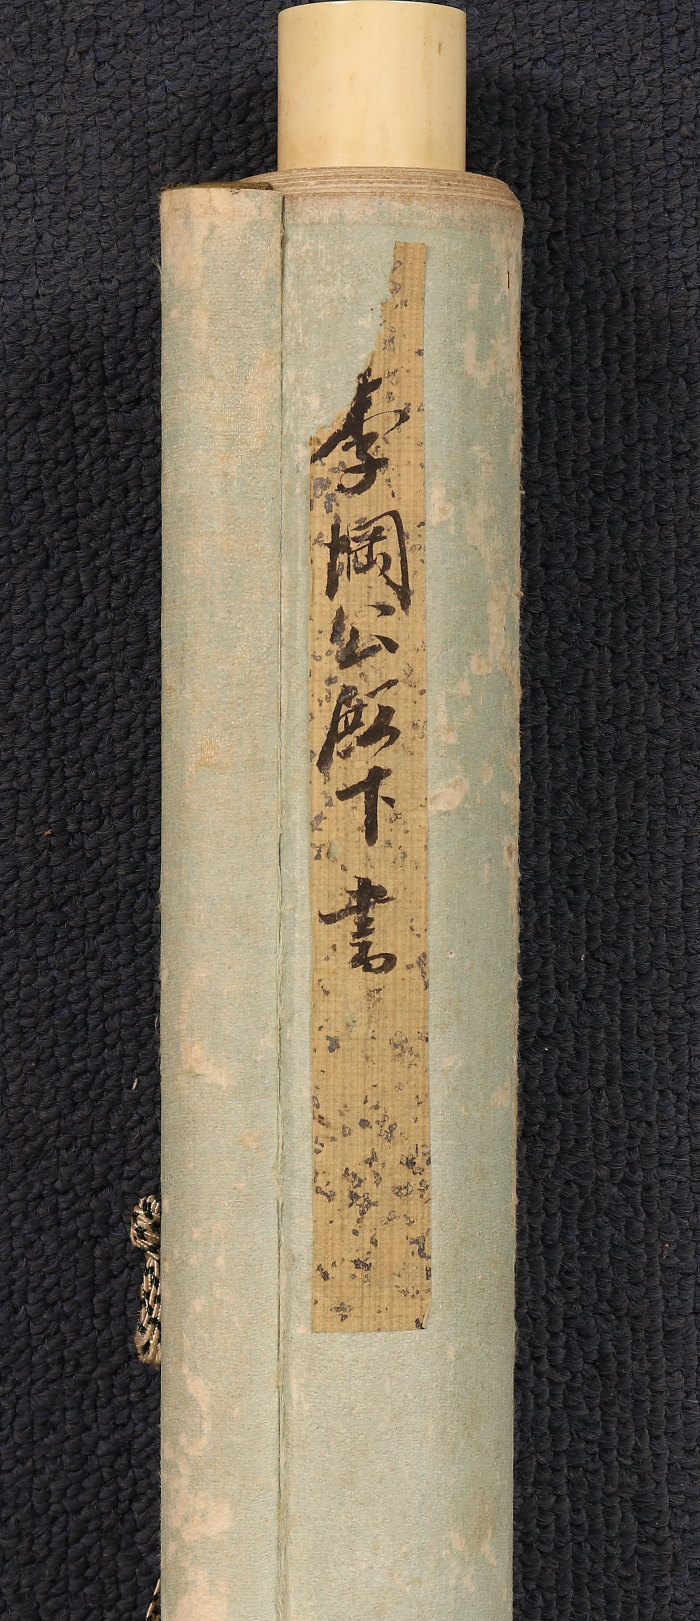 李堈公殿下書